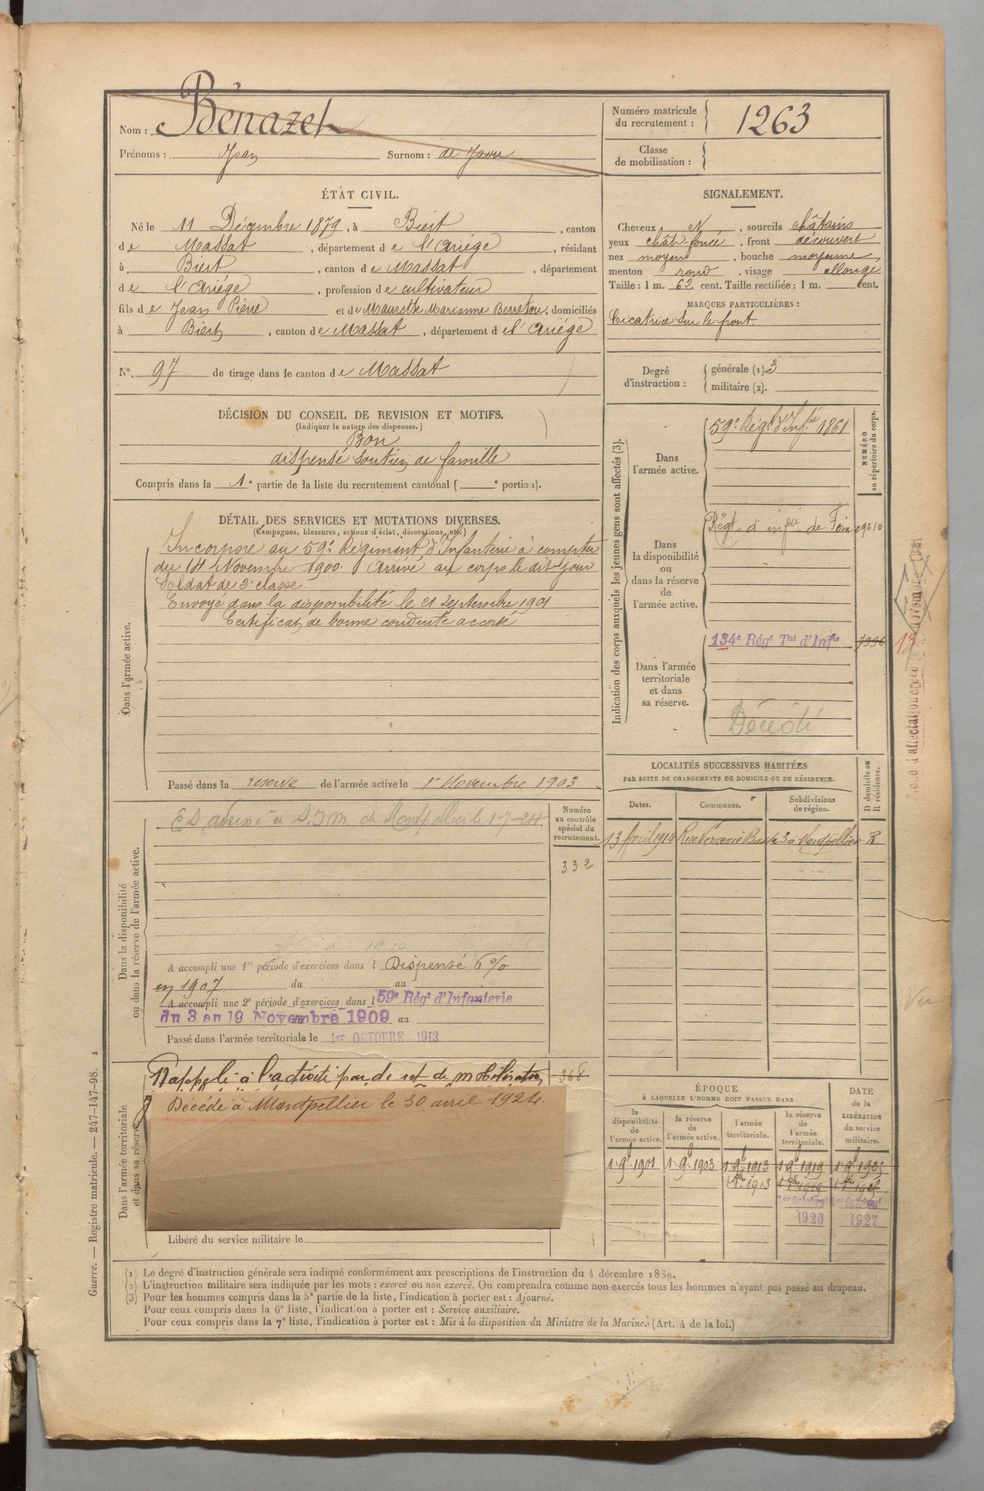 Nom : Bénazet
Prénoms : Jean Surnom : de
Numéro matricule du recrutement : 1263
Classe de mobilisation :
ÉTAT CIVIL.
Né le 11 Décembre 1879, à Biert, canton
de Massat, département de l'Ariège, résidant
à Biert, canton de Massat, département
de l'Ariège, profession de cultivateur
fils de Jean Pierre et de Maurette Marianne, domiciliés
à Biert, canton de Massat, département de l'Ariège
N°. 97 de tirage dans le canton de Massat
SIGNALEMENT.
Cheveux N, sourcils châtains
yeux chât foncé, front découvert
nez moyen, bouche moyenne
menton rond, visage allongé
Taille : 1 m. 62 cent. Taille rectifiée : 1 m. cent.
MARQUES PARTICULIÈRES :
Cicatrice sur le front.
Degré d'instruction : générale (1) 3
militaire (2).
DÉCISION DU CONSEIL DE REVISION ET MOTIFS.
(Indiquer la nature des dispenses.)
Bon
dispensé soutien de famille
Compris dans la 1e partie de la liste du recrutement cantonal ( e portion).
DÉTAIL DES SERVICES ET MUTATIONS DIVERSES.
(Campagnes, blessures, actions d'éclat, décorations, etc.)
Dans l'armée active.
Incorporé au 59e Régiment d'Infanterie à compter
du 14 Novembre 1900. Arrivé au corps le dit jour
Soldat de 2e classe.
Envoyé dans la disponibilité le 21 Septembre 1901
Certificat de bonne conduite accordé
Passé dans la réserve de l'armée active le 1er Novembre 1903
Indication des corps auxquels les jeunes gens sont affectés (3).
NUMÉRO au répertoire du corps.
Dans l'armée active.
59e Régt d'Infie 1861
Dans la disponibilité ou dans la réserve de l'armée active.
Régt d'infie de Foix 09610
Dans l'armée territoriale et dans sa réserve.
134e Régt Tal d'Infie
13
Décédé
LOCALITÉS SUCCESSIVES HABITÉES
PAR SUITE DE CHANGEMENTS DE DOMICILE OU DE RÉSIDENCE.
Dates. Communes. Subdivisions de région. D domicile ou R résidence.
13 Avril 1914 Montpellier R
Dans la disponibilité ou dans la réserve de l'armée active.
Numéro au contrôle spécial du recrutement.
332
de Montpellier le 1-7-24
A accompli une 1re période d'exercices dans l Dispensé 6%
en 1907 du au
A accompli une 2e période d'exercices dans l 59e Régt d'Infanterie
du 3 au 19 Novembre 1909 au
Passé dans l'armée territoriale le 1er OCTOBRE 1913
Dans l'armée territoriale et dans sa réserve.
Rappelé à l'activité par décret de mobilisation
368
Décédé à Montpellier le 30 avril 1924.
Libéré du service militaire le
ÉPOQUE
À LAQUELLE L'HOMME DOIT PASSER DANS
la disponibilité de l'armée active. la réserve de l'armée active. l'armée territoriale. la réserve de l'armée territoriale.
DATE de la LIBÉRATION du service militaire.
1 9b 1901 1 9b 1903 1 9b 1913 1 9b 1919 1 9b 1925
1920 1927
(1) Le degré d'instruction générale sera indiqué conformément aux prescriptions de l'instruction du 4 décembre 1889.
(2) L'instruction militaire sera indiquée par les mots : exercé ou non exercé. On comprendra comme non exercés tous les hommes n'ayant pas passé au drapeau.
(3) Pour les hommes compris dans la 5e partie de la liste, l'indication à porter est : Ajourné.
Pour ceux compris dans la 6e liste, l'indication à porter est : Service auxiliaire.
Pour ceux compris dans la 7e liste, l'indication à porter est : Mis à la disposition du Ministre de la Marine. (Art. 4 de la loi.)
Guerre. — Registre matricule. — 247-147-98. 1